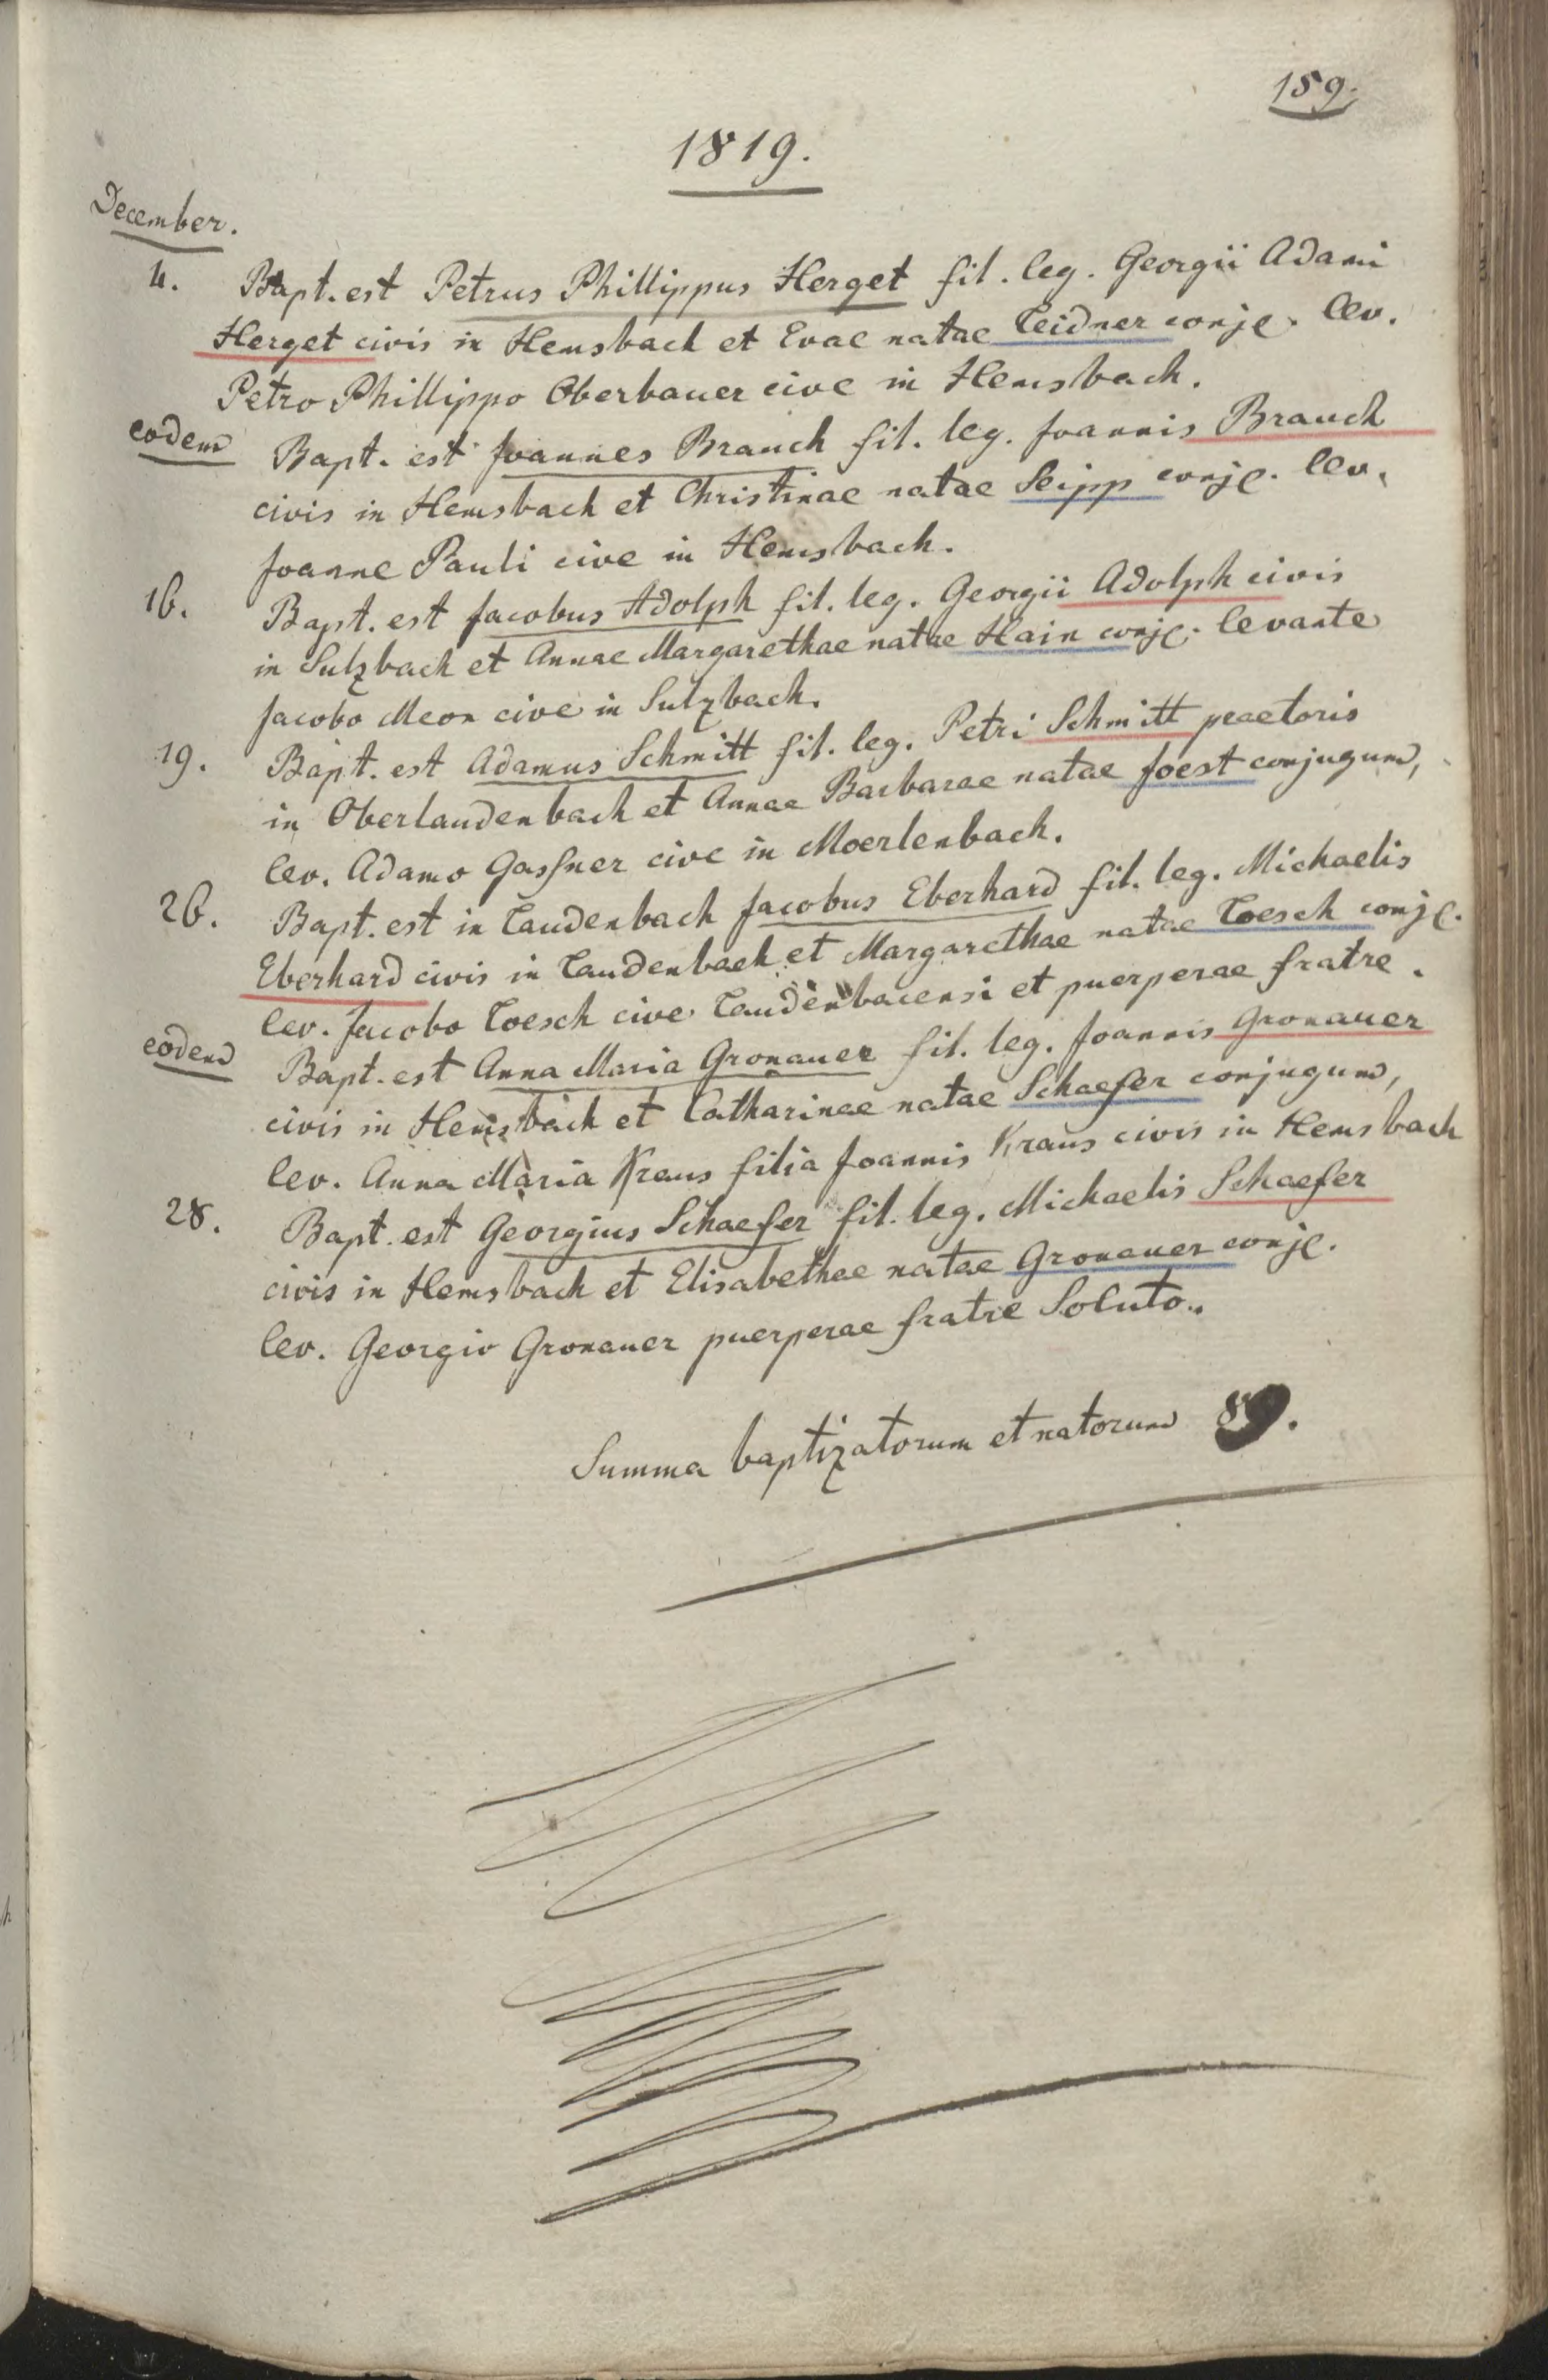 159.
1819.
December.
4. Bapt. est Petrus Phillippus Herget fil. leg. Georgii Adami
Herget civis in Hemsbach et Evae natae Leidner conjg. lev.
Petro Phillippo Oberbauer cive in Hemsbach.
eodem Bapt. est Joannes Brauch fil. leg. Joannis Brauch
civis in Hemsbach et Christinae natae Seipp conjg. lev.
Joanne Pauli cive in Hemsbach.
16. Bapt. est Jacobus Adolph fil. leg. Georgii Adolph civis
in Sulzbach et Annae Margarethae natae Hain conjg. levante
Jacobo Meon cive in Sulzbach.
19. Bapt. est Adamus Schmitt fil. leg. Petri Schmitt praetoris
in Oberlaudenbach et Annae Barbarae natae Joest conjugum,
lev. Adamo Gassner cive in Moerlenbach.
26. Bapt. est in Laudenbach Jacobus Eberhard fil. leg. Michaelis
Eberhard civis in Laudenbach et Margarethae natae Loesch conjg.
lev. Jacobo Loesch cive Laudenbacensi et puerperae fratre.
eodem Bapt. est Anna Maria Gronauer fil. leg. Joannis Gronauer
civis in Hemsbach et Catharinae natae Schaefer conjugum,
lev. Anna Maria Kraus filia Joannis Kraus civis in Hemsbach
28. Bapt. est Georgius Schaefer fil. leg. Michaelis Schaefer
civis in Hemsbach et Elisabethae natae Gronauer conjg.
lev. Georgio Gronauer puerperae fratre Soluto.
Summa baptizatorum et natorum 89.